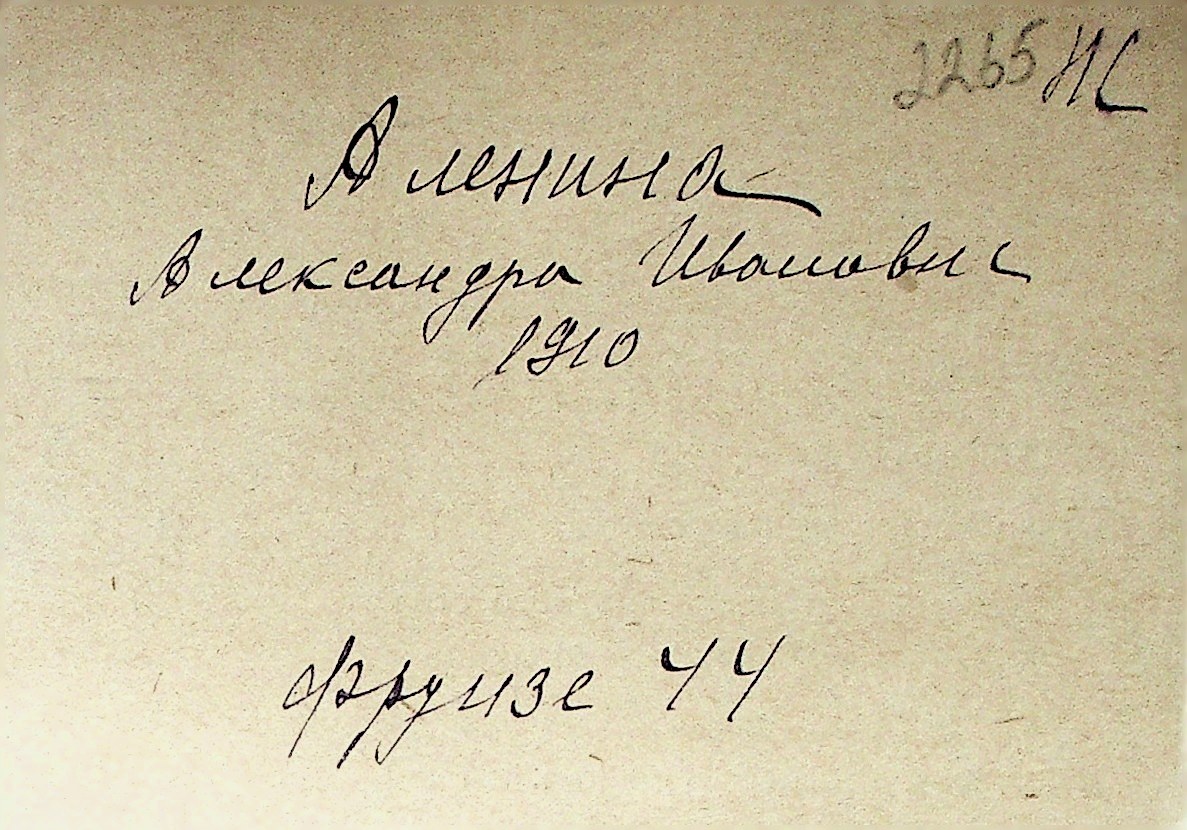 2265 НС
Аленина
Александра Ивановн
1910
Фрунзе 44